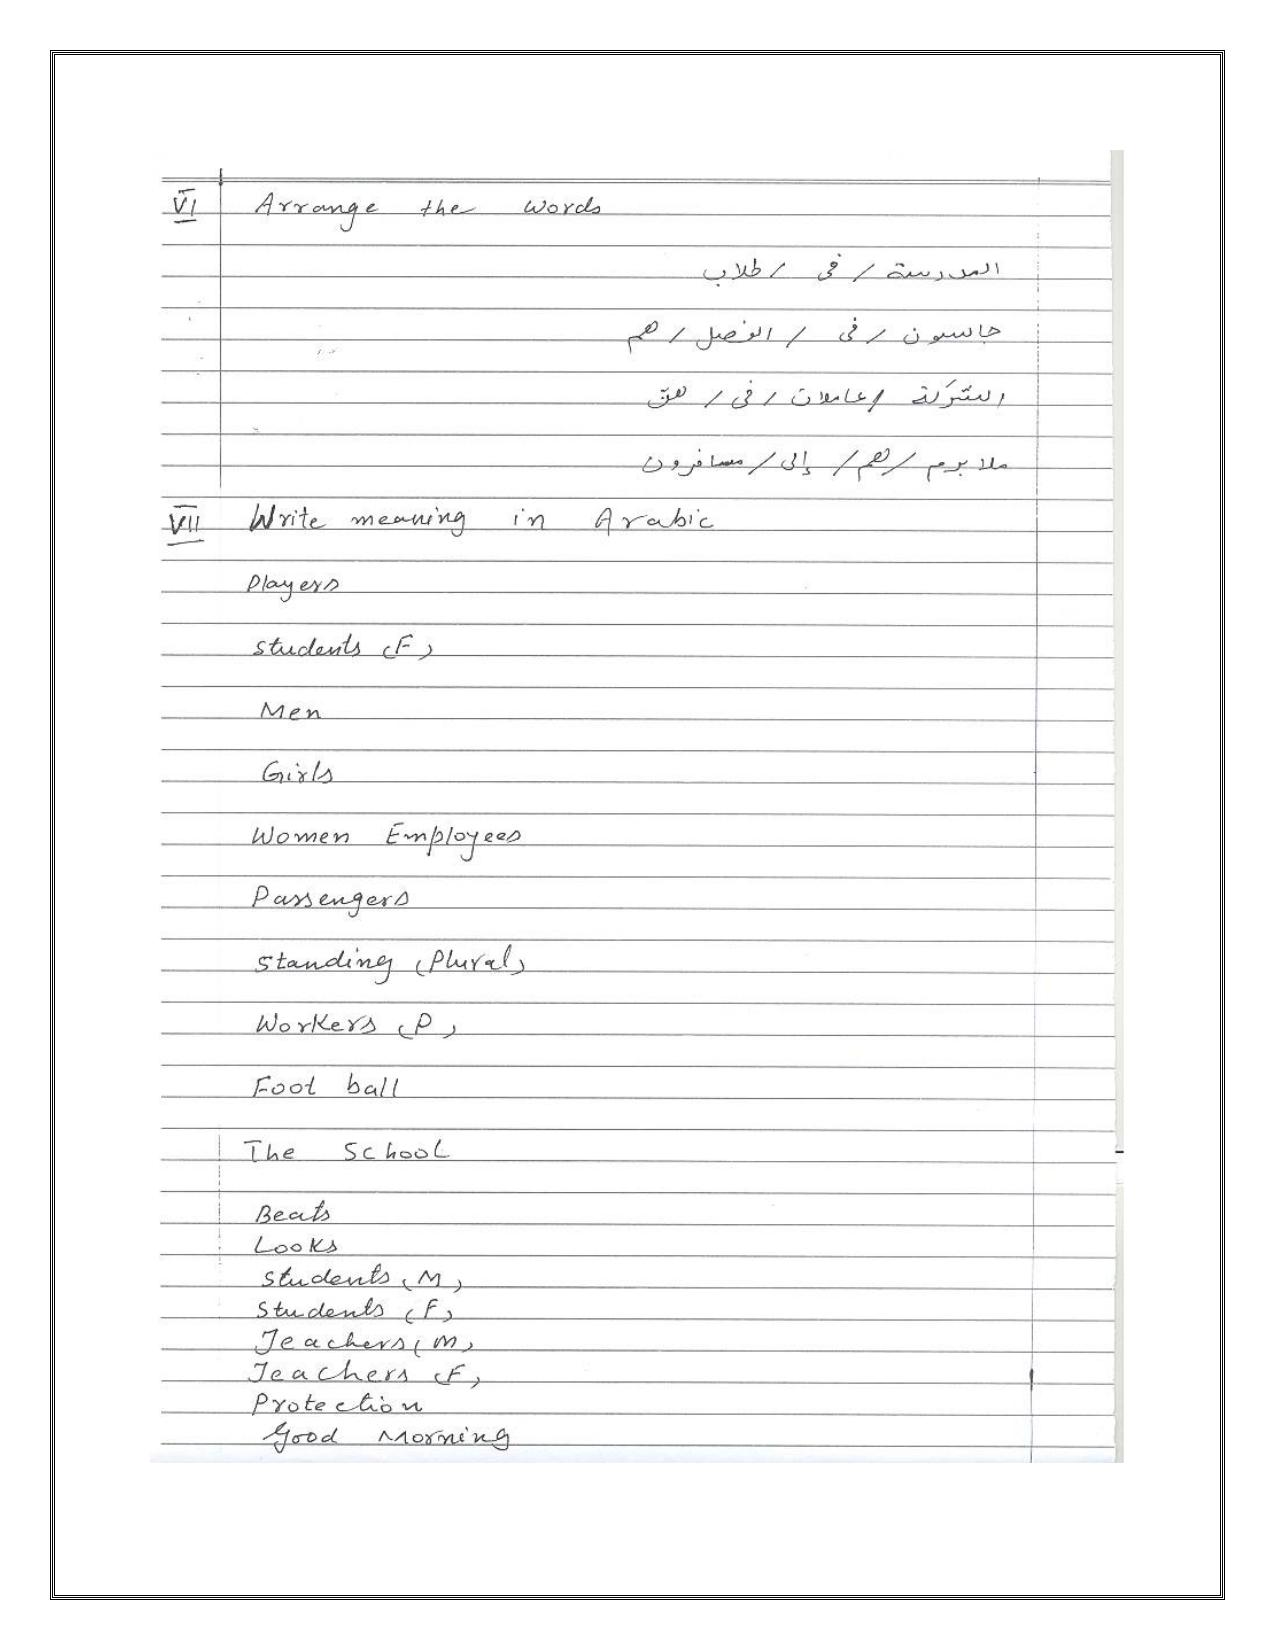 VI Arrange the Words
المدرسة / فى / طلاب
جالسون / فى / الفصل / هم
الشركة / عاملات / فى / هنّ
ملا برم / هم / إلى / مسافرون
VII Write meaning in Arabic
Players
Students (F)
Men
Girls
Women Employees
Passengers
Standing (Plural)
Workers (P)
Foot ball
The School
Beats
Looks
Students (M)
Students (F)
Teachers (M)
Teachers (F)
Protection
Good Morning